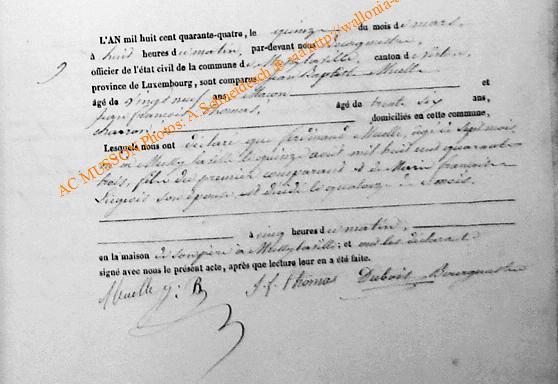 L'AN mil huit cent quarante-quatre, le quinze du mois de mars,
à huit heures du matin, par-devant nous Bourguet
officier de l'état civil de la commune de canton de Virton,
province de Luxembourg, sont comparus Jean Baptiste Muelle
âgé de vingt neuf ans et
Jean françois thomas, âgé de trente six ans,
charron domiciliés en cette commune,
Lesquels nous ont déclaré que ferdinand Muelle, âgé de Sept mois,
né à le quinze août mil huit cent quarante
trois, fils du premier comparant et de Marie françoise
son épouse est décédé le quatorze de ce mois
à cinq heures du matin,
en la maison de son père à et ont les déclarants
signé avec nous le présent acte, après que lecture leur en a été faite.
Muelle j. B J. f. thomas Dubois
AC MUSSON Photos: A Schneidesch